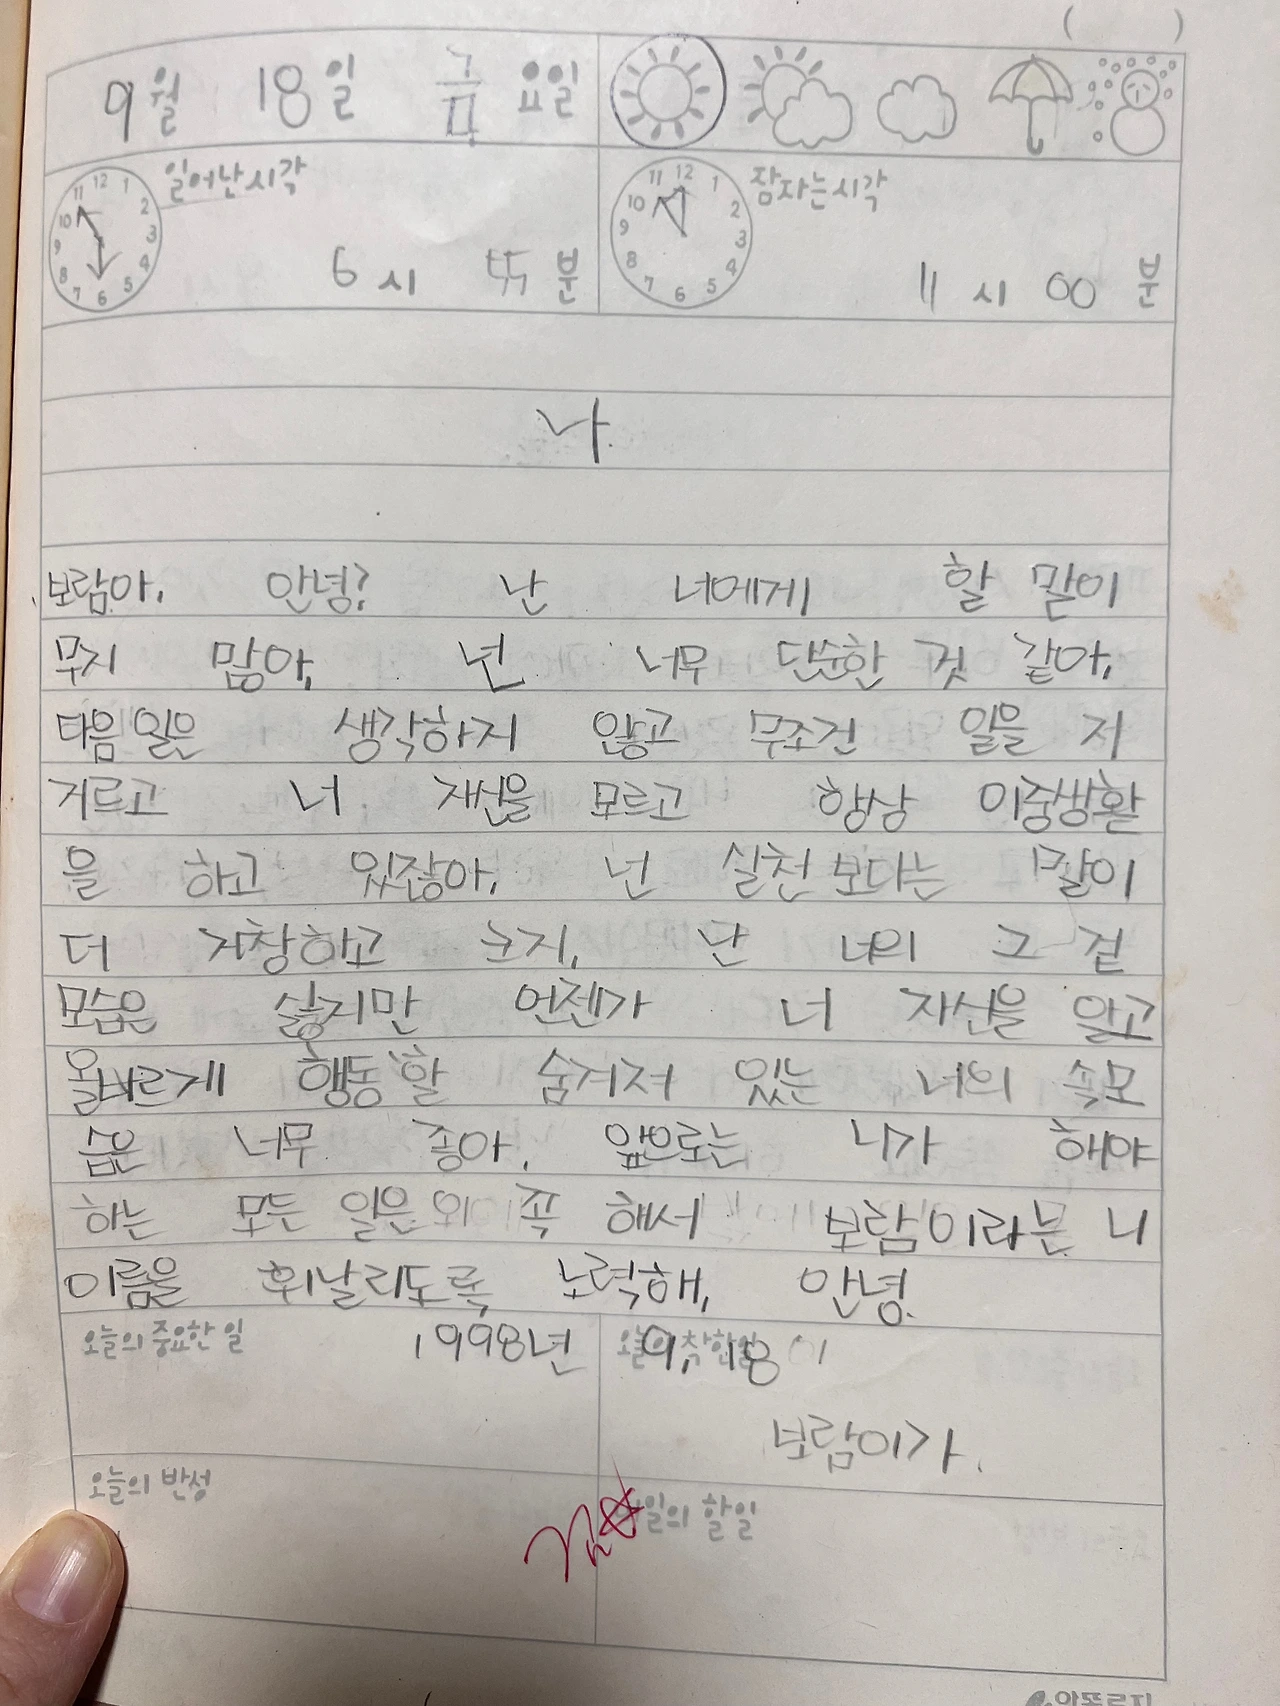 (        )
9월 18일 금요일
일어난시각
12 1 2 3 4 5 6 7 8 9 10 11
6시 55분
잠자는시각
12 1 2 3 4 5 6 7 8 9 10 11
11시 00분
나.
보람아. 안녕? 난 너에게 할 말이
무지 많아. 넌 너무 단순한 것 같아.
다음 일은 생각하지 않고 무조건 일을 저
거르고 너 자신을 모르고 항상 이중생활
을 하고 있잖아. 넌 실천 보다는 말이
더 거창하고 크지. 난 너의 그 겉
모습은 싫지만 언젠가 너 자신을 알고
올바르게 행동할 숨겨져 있는 너의 속모
습은 너무 좋아. 앞으로는 니가 해야
하는 모든 일은 꼭 해서 보람이라는 니
이름을 휘날리도록 노력해. 안녕.
오늘의 중요한 일
1998년 9. 18
오늘의 착한일
보람이가.
오늘의 반성
내일의 할일